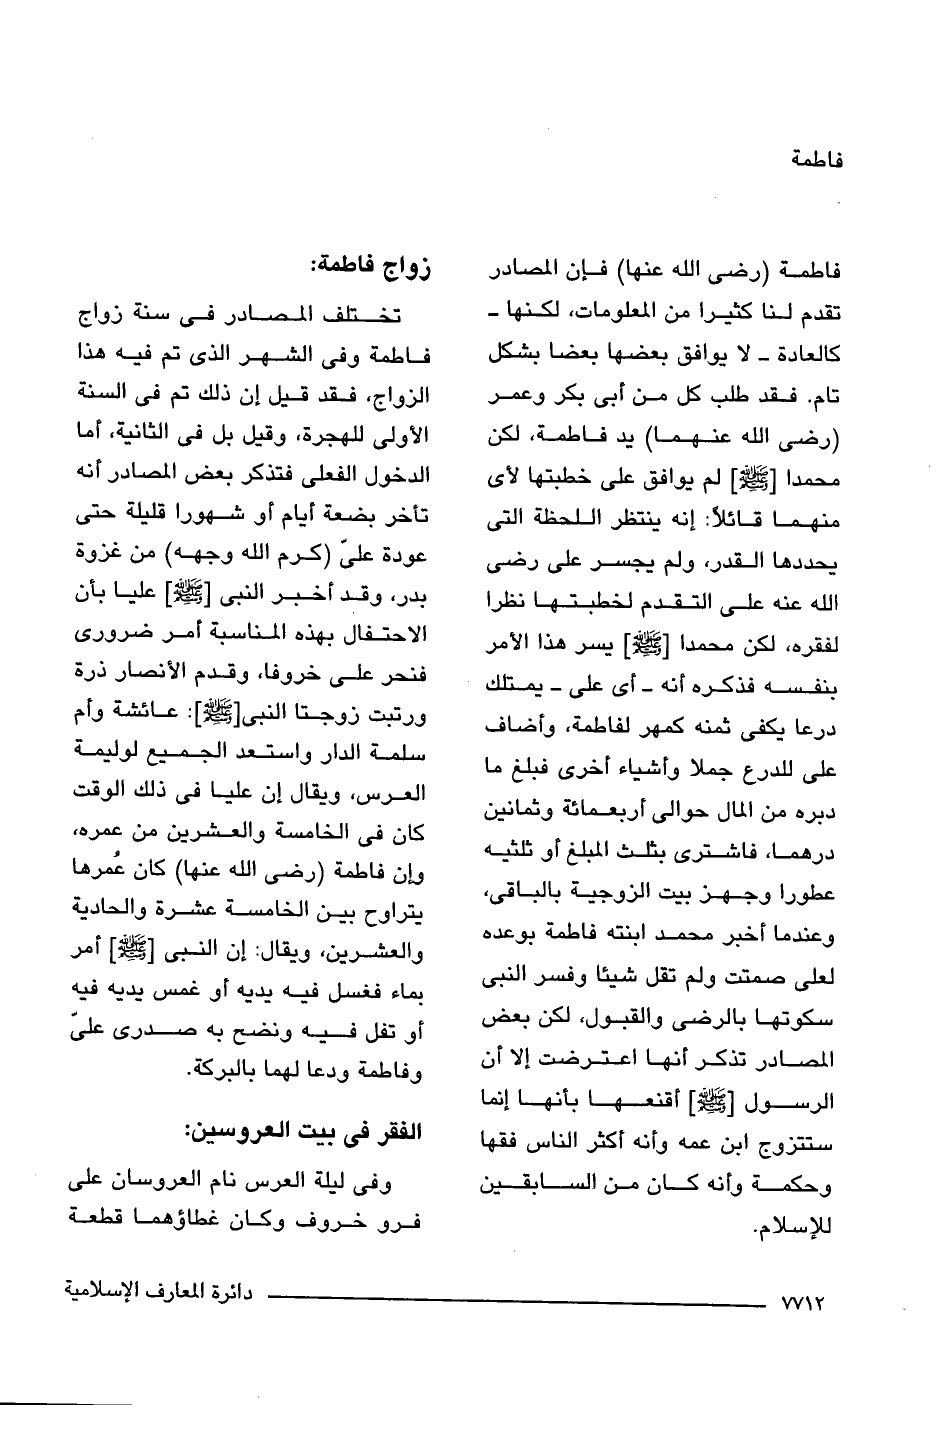 فاطمة
فاطمة (رضى الله عنها) فإن المصادر
تقدم لنا كثيرا من المعلومات، لكنها ـ
كالعادة ـ لا يوافق بعضها بعضا بشكل
تام. فقد طلب كل من أبى بكر وعمر
(رضى الله عنهما) يد فاطمة، لكن
محمدا [ﷺ] لم يوافق على خطبتها لأى
منهما قائلاً: إنه ينتظر اللحظة التى
يحددها القدر، ولم يجسر على رضى
الله عنه على التقدم لخطبتها نظرا
لفقره، لكن محمدا [ﷺ] يسر هذا الأمر
بنفسه فذكره أنه ـ أى على ـ يمتلك
درعا يكفى ثمنه كمهر لفاطمة، وأضاف
على للدرع جملا وأشياء أخرى فبلغ ما
دبره من المال حوالى أربعمائة وثمانين
درهما، فاشترى بثلث المبلغ أو ثلثيه
عطورا وجهز بيت الزوجية بالباقى،
وعندما أخبر محمد ابنته فاطمة بوعده
لعلى صمتت ولم تقل شيئا وفسر النبى
سكوتها بالرضى والقبول، لكن بعض
المصادر تذكر أنها اعترضت إلا أن
الرسول [ﷺ] أقنعها بأنها إنما
ستتزوج ابن عمه وأنه أكثر الناس فقها
وحكمة وأنه كان من السابقين
للإسلام.
زواج فاطمة:
تختلف المصادر فى سنة زواج
فاطمة وفى الشهر الذى تم فيه هذا
الزواج، فقد قيل إن ذلك تم فى السنة
الأولى للهجرة، وقيل بل فى الثانية، أما
الدخول الفعلى فتذكر بعض المصادر أنه
تأخر بضعة أيام أو شهورا قليلة حتى
عودة علىّ (كرم الله وجهه) من غزوة
بدر، وقد أخبر النبى [ﷺ] عليا بأن
الاحتفال بهذه المناسبة أمر ضرورى
فنحر على خروفا، وقدم الأنصار ذرة
ورتبت زوجتا النبى[ﷺ]: عائشة وأم
سلمة الدار واستعد الجميع لوليمة
العرس، ويقال إن عليا فى ذلك الوقت
كان فى الخامسة والعشرين من عمره،
وإن فاطمة (رضى الله عنها) كان عُمرها
يتراوح بين الخامسة عشرة والحادية
والعشرين، ويقال: إن النبى [ﷺ] أمر
بماء فغسل فيه يديه أو غمس يديه فيه
أو تفل فيه ونضح به صدرى علىّ
وفاطمة ودعا لهما بالبركة.
الفقر فى بيت العروسين:
وفى ليلة العرس نام العروسان على
فرو خروف وكان غطاؤهما قطعة
٧٧١٢ دائرة المعارف الإسلامية